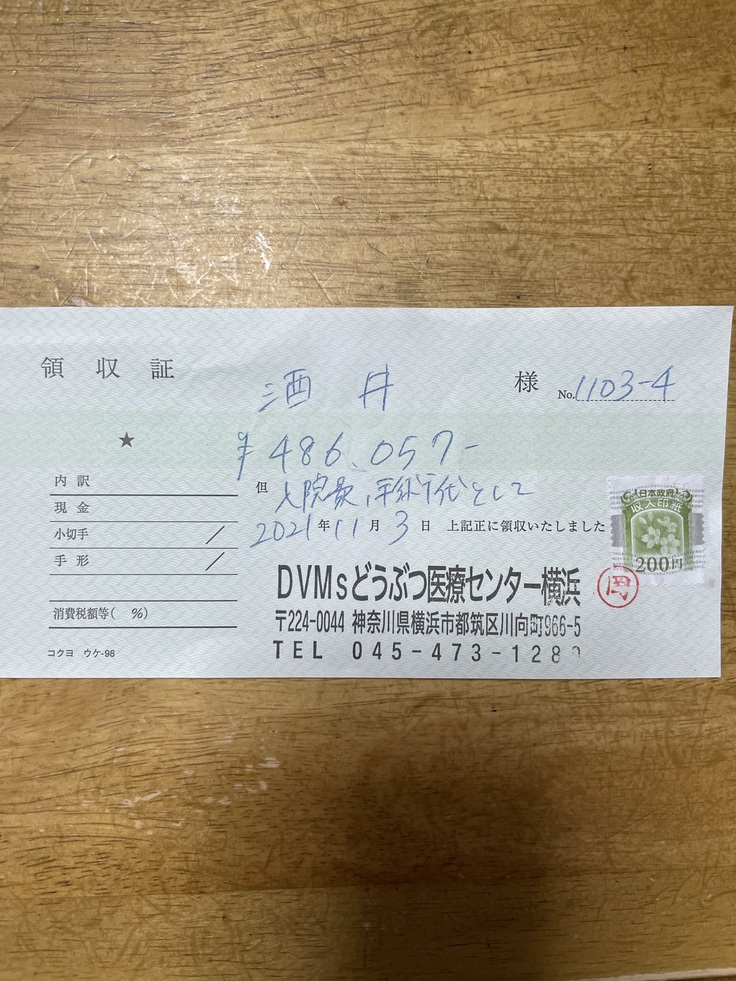 領収証
酒井 様 No.1103-4
★ ¥486,057-
内訳
現金
小切手
手形
消費税額等( %)
コクヨ ウケ-98
但 入院費、手術代として
2021年11月3日 上記正に領収いたしました
DVMsどうぶつ医療センター横浜
〒224-0044 神奈川県横浜市都筑区川向町966-5
TEL 045-473-128
日本政府
収入印紙
200円